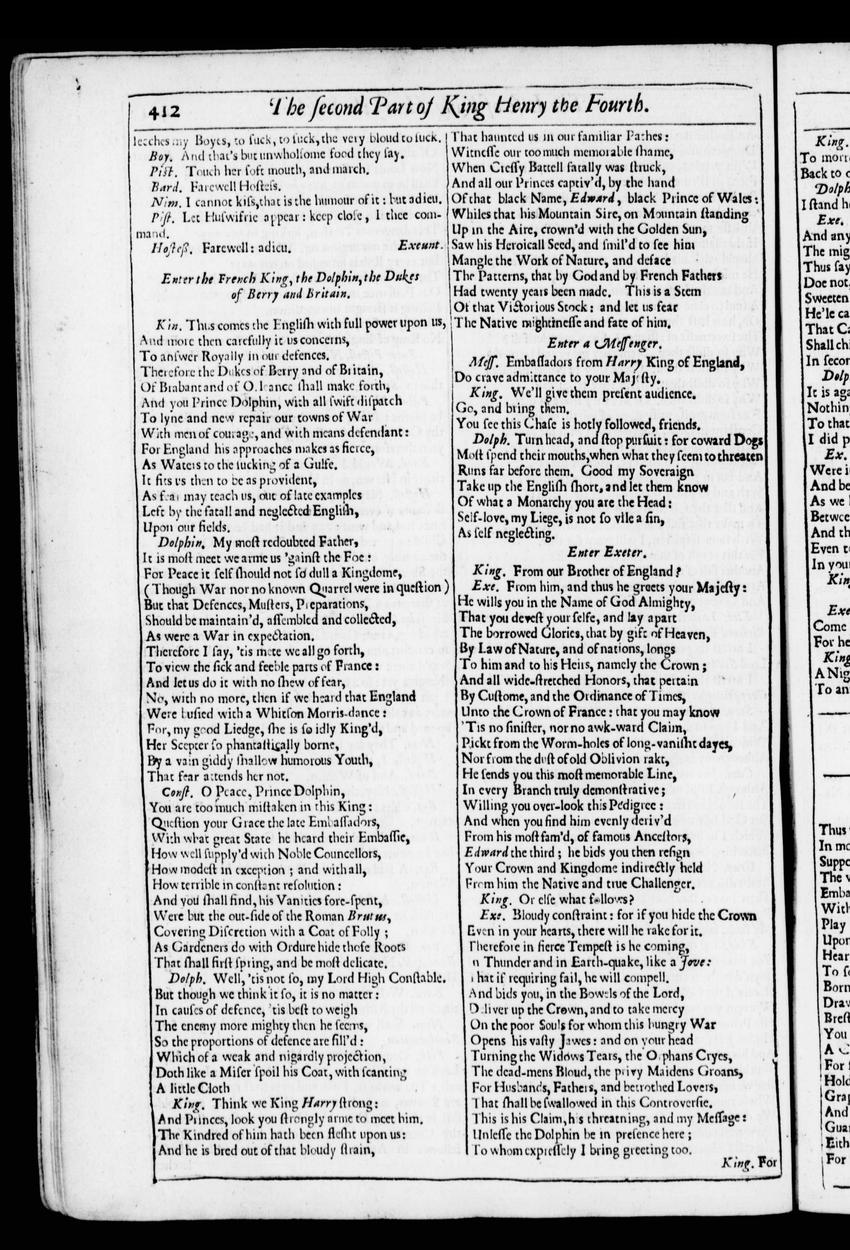 412 The ſecond Part of King Henry the Fourth.
leeches my Boyes, to ſuck, to ſuck, the very bloud to ſuck.
Boy. And that's but unwholſome food they ſay.
Piſt. Touch her ſoft mouth, and march.
Bard. Farewell Hoſteſs.
Nim. I cannot kiſs, that is the humour of it: but adieu.
Piſt. Let Huſwifrie appear: keep cloſe, I thee com-
mand.
Hoſteß. Farewell: adieu. Exeunt.
Enter the French King, the Dolphin, the Dukes
of Berry and Britain.
Kin. Thus comes the Engliſh with full power upon us,
And more then carefully it us concerns,
To anſwer Royally in our defences.
Therefore the Dukes of Berry and of Britain,
Of Brabant and of Orleance ſhall make forth,
And you Prince Dolphin, with all ſwift diſpatch
To lyne and new repair our towns of War
With men of courage, and with means defendant:
For England his approaches makes as fierce,
As Waters to the ſucking of a Gulfe.
It fits us then to be as provident,
As fear may teach us, out of late examples
Left by the fatall and neglected Engliſh,
Upon our fields.
Dolphin. My moſt redoubted Father,
It is moſt meet we arme us 'gainſt the Foe:
For Peace it ſelf ſhould not ſo dull a Kingdome,
(Though War nor no known Quarrel were in queſtion)
But that Defences, Muſters, Preparations,
Should be maintain'd, aſſembled and collected,
As were a War in expectation.
Therefore I ſay, 'tis meete we all go forth,
To view the ſick and feeble parts of France:
And let us do it with no ſhew of fear,
No, with no more, then if we heard that England
Were buſied with a Whitſon Morris-dance:
For, my good Liedge, ſhe is ſo idly King'd,
Her Scepter ſo phantaſtically borne,
By a vain giddy ſhallow humorous Youth,
That fear attends her not.
Conſt. O Peace, Prince Dolphin,
You are too much miſtaken in this King:
Queſtion your Grace the late Embaſſadors,
With what great State he heard their Embaſſie,
How well ſupply'd with Noble Councellors,
How modeſt in exception; and withall,
How terrible in conſtant reſolution:
And you ſhall find, his Vanities fore-ſpent,
Were but the out-ſide of the Roman Brutus,
Covering Diſcretion with a Coat of Folly;
As Gardeners do with Ordure hide thoſe Roots
That ſhall firſt ſpring, and be moſt delicate.
Dolph. Well, 'tis not ſo, my Lord High Conſtable.
But though we think it ſo, it is no matter:
In cauſes of defence, 'tis beſt to weigh
The enemy more mighty then he ſeems,
So the proportions of defence are fill'd:
Which of a weak and nigardly projection,
Doth like a Miſer ſpoil his Coat, with ſcanting
A little Cloth
King. Think we King Harry ſtrong:
And Princes, look you ſtrongly arme to meet him.
The Kindred of him hath been fleſht upon us:
And he is bred out of that bloudy ſtrain,
That haunted us in our familiar Pathes:
Witneſſe our too much memorable ſhame,
When Creſſy Battell fatally was ſtruck,
And all our Princes captiv'd, by the hand
Of that black Name, Edward, black Prince of Wales:
Whiles that his Mountain Sire, on Mountain ſtanding
Up in the Aire, crown'd with the Golden Sun,
Saw his Heroicall Seed, and ſmil'd to ſee him
Mangle the Work of Nature, and deface
The Patterns, that by God and by French Fathers
Had twenty years been made. This is a Stem
Of that Victorious Stock: and let us fear
The Native mightineſſe and fate of him.
Enter a Meſſenger.
Meſſ. Embaſſadors from Harry King of England,
Do crave admittance to your Majeſty.
King. We'll give them preſent audience.
Go, and bring them.
You ſee this Chaſe is hotly followed, friends.
Dolph. Turn head, and ſtop purſuit: for coward Dogs
Moſt ſpend their mouths, when what they ſeem to threaten
Runs far before them. Good my Soveraign
Take up the Engliſh ſhort, and let them know
Of what a Monarchy you are the Head:
Self-love, my Liege, is not ſo vile a ſin,
As ſelf neglecting.
Enter Exeter.
King. From our Brother of England?
Exe. From him, and thus he greets your Majeſty:
He wills you in the Name of God Almighty,
That you deveſt your ſelfe, and lay apart
The borrowed Glories, that by gift of Heaven,
By Law of Nature, and of nations, longs
To him and to his Heirs, namely the Crown;
And all wide-ſtretched Honors, that pertain
By Cuſtome, and the Ordinance of Times,
Unto the Crown of France: that you may know
'Tis no ſiniſter, nor no awk-ward Claim,
Pickt from the Worm-holes of long-vaniſht dayes,
Nor from the duſt of old Oblivion rakt,
He ſends you this moſt memorable Line,
In every Branch truly demonſtrative;
Willing you over-look this Pedigree:
And when you find him evenly deriv'd
From his moſt fam'd, of famous Anceſtors,
Edward the third; he bids you then reſign
Your Crown and Kingdome indirectly held
From him the Native and true Challenger.
King. Or elſe what follows?
Exe. Bloudy conſtraint: for if you hide the Crown
Even in your hearts, there will he rake for it.
Therefore in fierce Tempeſt is he coming,
n Thunder and in Earth-quake, like a Jove:
That if requiring fail, he will compell.
And bids you, in the Bowels of the Lord,
Deliver up the Crown, and to take mercy
On the poor Souls for whom this hungry War
Opens his vaſty Jawes: and on your head
Turning the Widows Tears, the Orphans Cryes,
The dead-mens Bloud, the privy Maidens Groans,
For Husbands, Fathers, and betrothed Lovers,
That ſhall be ſwallowed in this Controverſie.
This is his Claim, his threatning, and my Meſſage:
Unleſſe the Dolphin be in preſence here;
To whom expreſſely I bring greeting too.
King. For
King.
To morr
Back to
Dolph
I ſtand h
Exe.
And any
The mig
Thus ſay
Doe not,
Sweeten
He'le ca
That C
Shall chi
In ſecon
Dolp
It is aga
Nothin
To that
I did p
Ex.
Were i
And be
As we
Betwee
And th
Even t
In your
King
Exe
Come
For he
King
A Nig
To an
Thus
In mo
Suppo
The v
Emba
With
Play
Upon
Hear
To ſo
Born
Draw
Breſt
You
A C
For
Hold
Grap
And
Guar
Eith
For